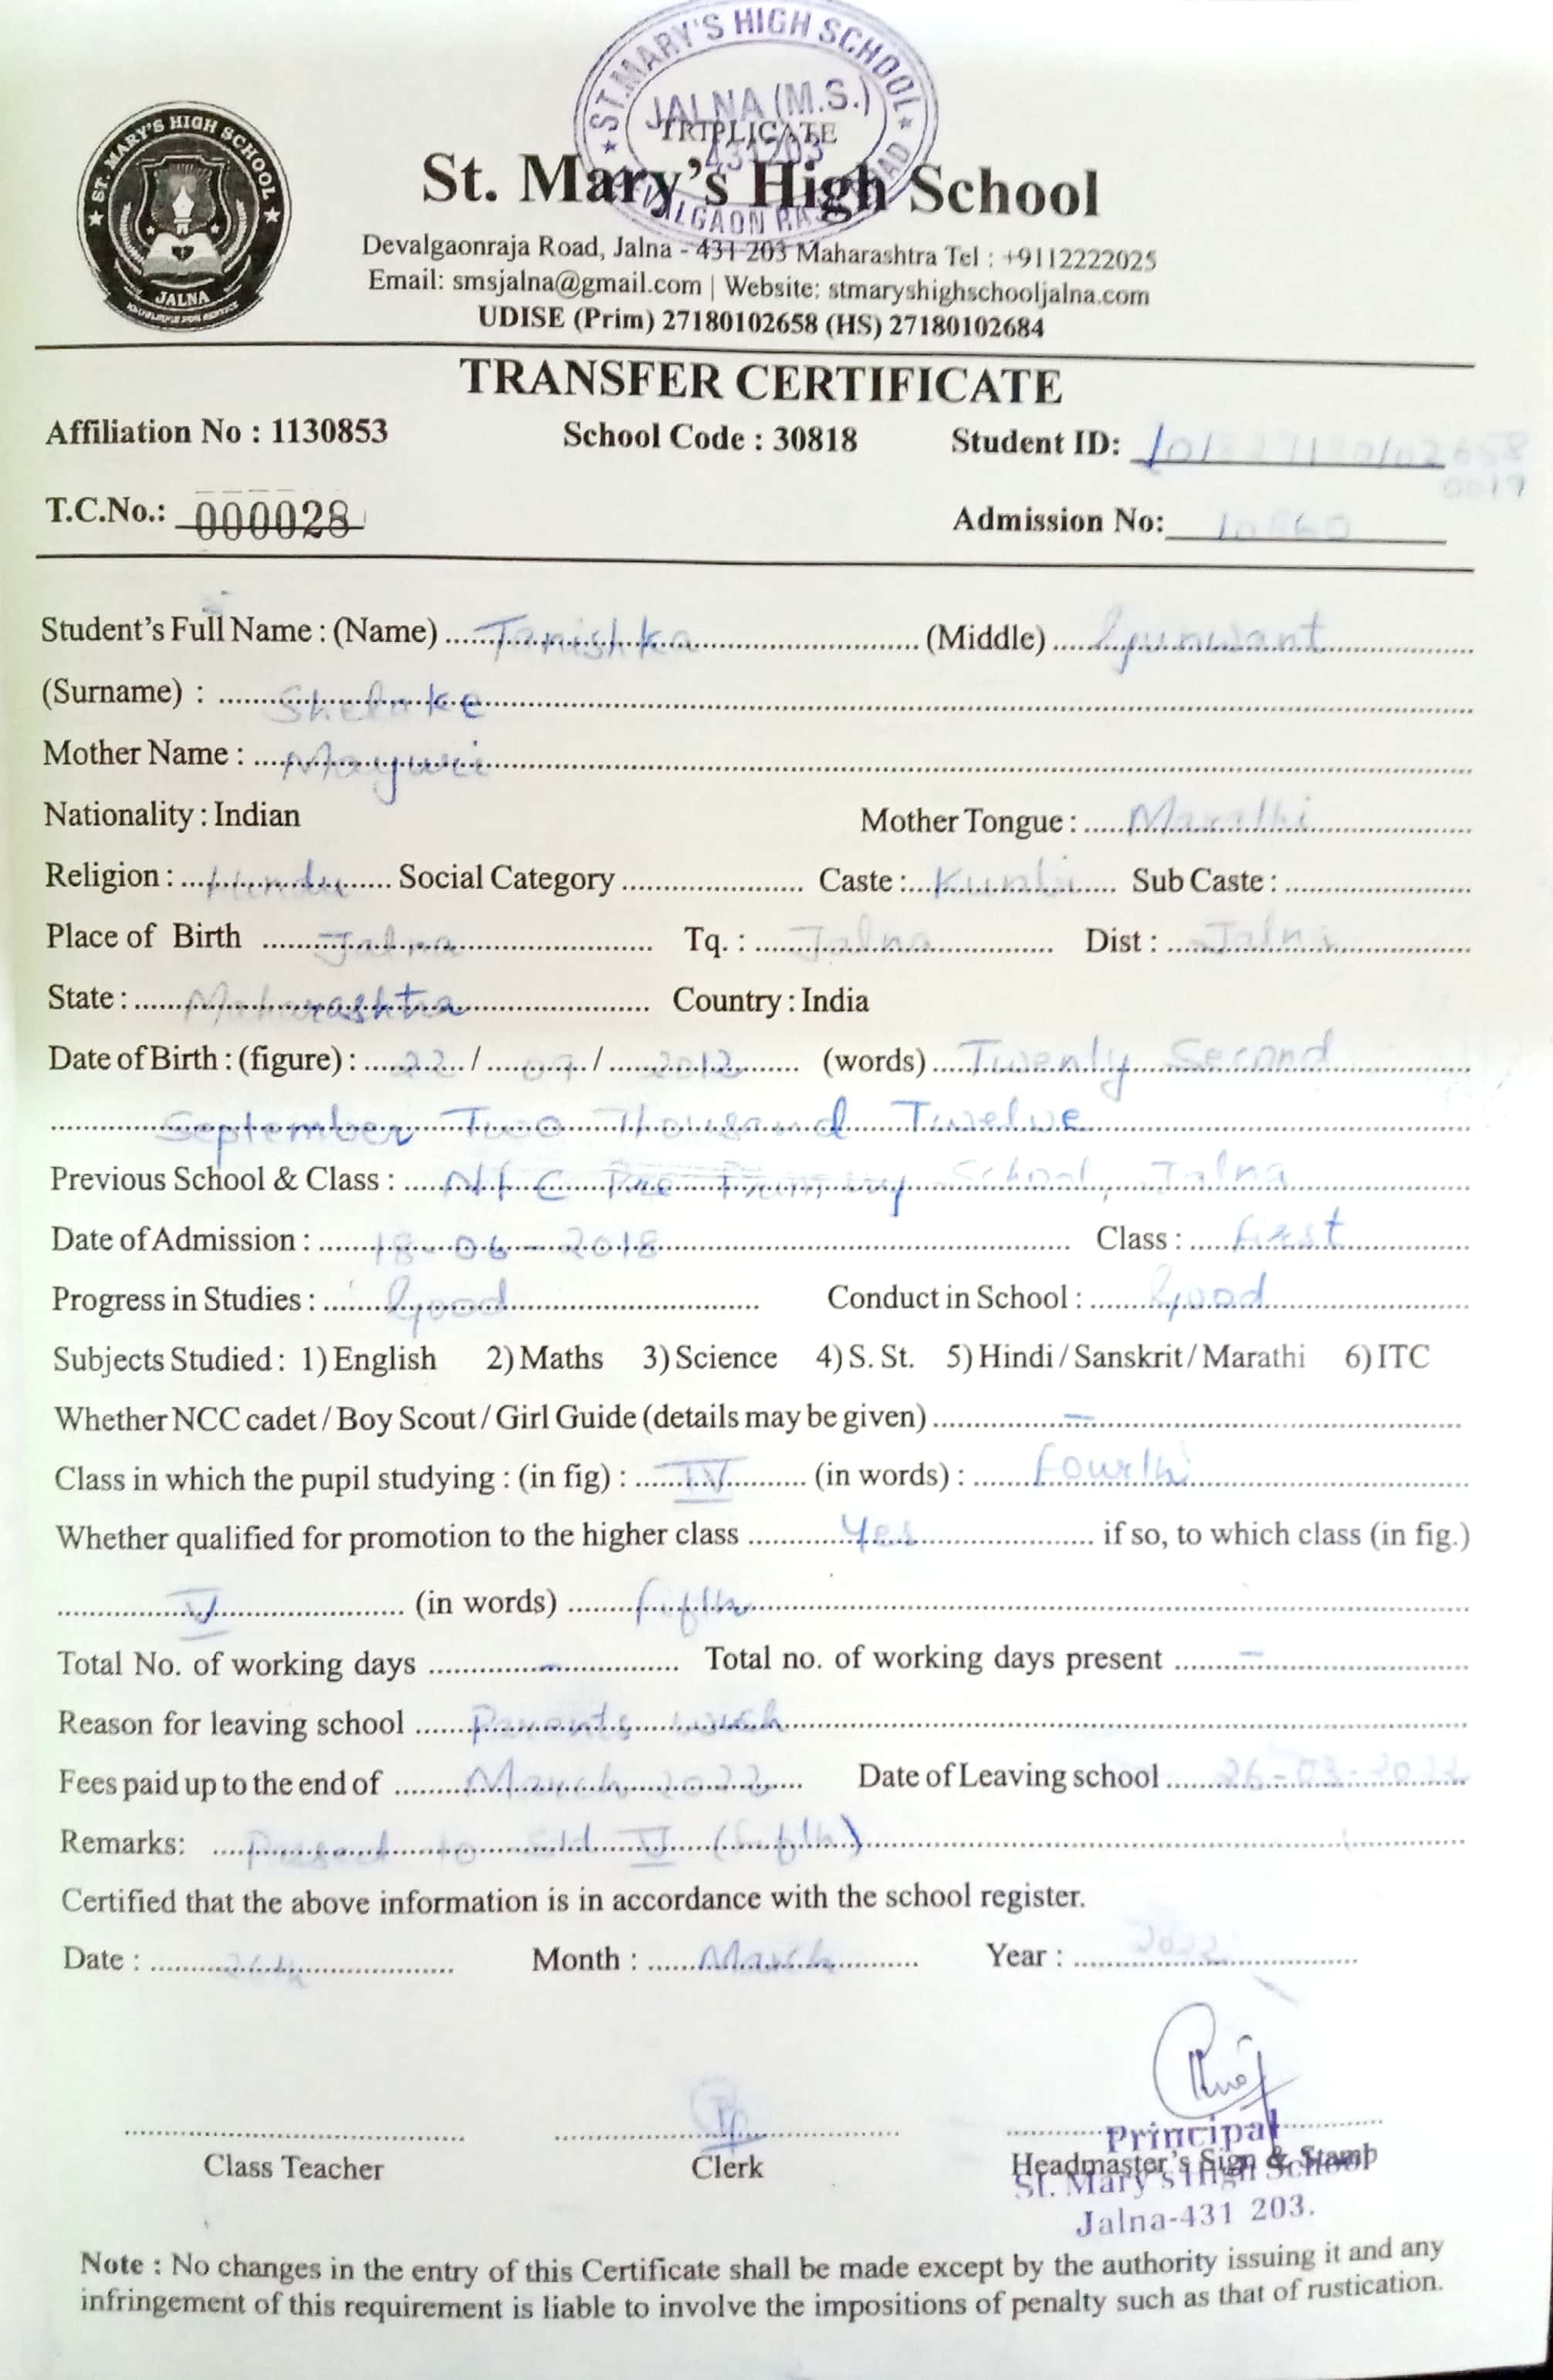 ST. MARY'S HIGH SCHOOL
JALNA (M.S.)
TRIPLICATE
431203
ST. MARY'S HIGH SCHOOL
JALNA
St. Mary's High School
Devalgaonraja Road, Jalna - 431 203 Maharashtra Tel : +9112222025
Email: smsjalna@gmail.com | Website: stmaryshighschooljalna.com
UDISE (Prim) 27180102658 (HS) 27180102684
TRANSFER CERTIFICATE
Affiliation No : 1130853 School Code : 30818 Student ID:
T.C.No.: 000028 Admission No: 10860
Student's Full Name : (Name) Tanishka (Middle) Gunwant
(Surname) : Shelake
Mother Name : Mayuri
Nationality : Indian Mother Tongue : Marathi
Religion : Hindu Social Category Caste : Kunbi Sub Caste :
Place of Birth Jalna Tq. : Jalna Dist : Jalna
State : Maharashtra Country : India
Date of Birth : (figure) : 22 / 09 / 2012 (words) Twenty Second
September Two Thousand Twelve
Previous School & Class : Pre Primary School, Jalna
Date of Admission : 18-06-2018 Class : First
Progress in Studies : Good Conduct in School : Good
Subjects Studied : 1) English 2) Maths 3) Science 4) S. St. 5) Hindi / Sanskrit / Marathi 6) ITC
Whether NCC cadet / Boy Scout / Girl Guide (details may be given) -
Class in which the pupil studying : (in fig) : IV (in words) : Fourth
Whether qualified for promotion to the higher class Yes if so, to which class (in fig.)
V (in words) fifth
Total No. of working days - Total no. of working days present -
Reason for leaving school Parents wish
Fees paid up to the end of March 2022 Date of Leaving school 26-03-2022
Remarks: to Std V (fifth)
Certified that the above information is in accordance with the school register.
Date : Month : March Year : 2022
Class Teacher Clerk Headmaster's Sign & Stamp
Principal
St. Mary's High School
Jalna-431 203.
Note : No changes in the entry of this Certificate shall be made except by the authority issuing it and any
infringement of this requirement is liable to involve the impositions of penalty such as that of rustication.